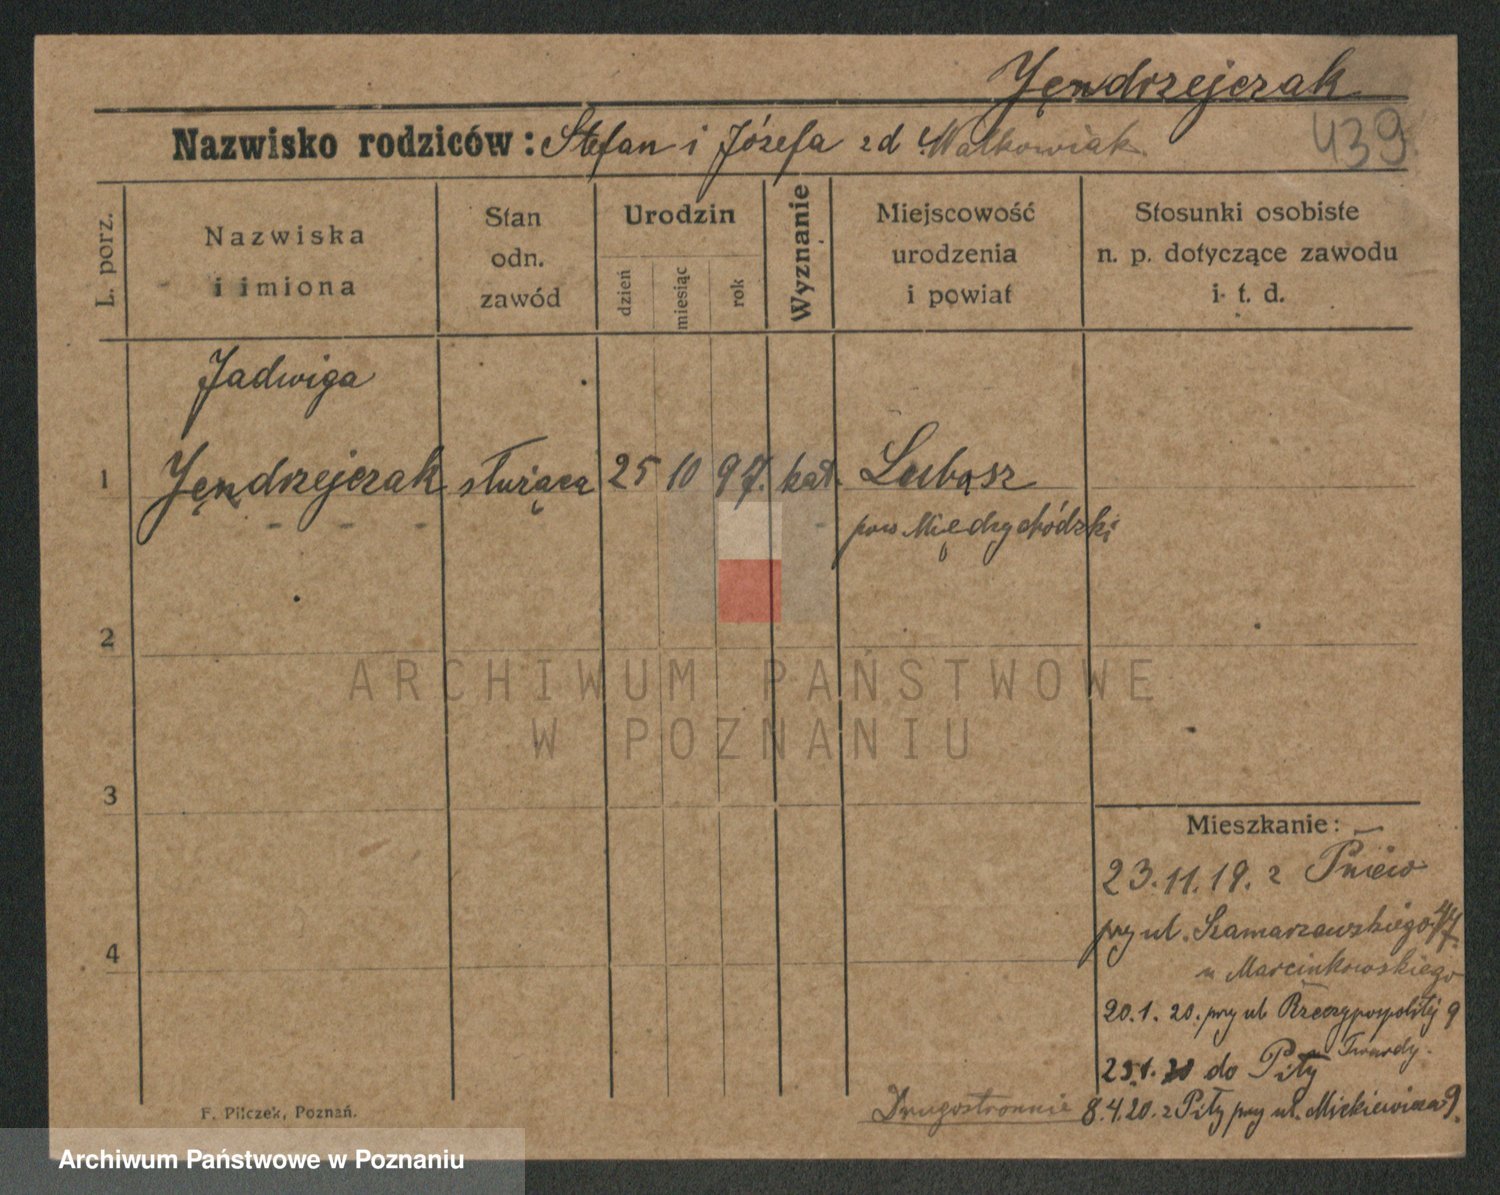 Jędrzejczak
Nazwisko rodziców: Stefan i Józefa zd Małkowiak
439
L. porz.
Nazwiska
i imiona
Stan
odn.
zawód
Urodzin
dzień
miesiąc
rok
Wyznanie
Miejscowość
urodzenia
i powiat
Stosunki osobiste
n. p. dotyczące zawodu
i t. d.
Jadwiga
1 Jęndrzejczak służąca 25 10 97. kat. Lubosz
pow Międzychódzki
2
ARCHIWUM PAŃSTWOWE
W POZNANIU
3
Mieszkanie:
23.11.19. z Pniew
przy ul. Szamarzewskiego
4
u Marcinkowskiego
20.1.20. przy ul Rzeczypospolitej 9
u Twardy.
do Piły
Drugostronnie 8.4.20. z Piły przy ul. Mickiewicza 9.
F. Pilczek, Poznań.
Archiwum Państwowe w Poznaniu